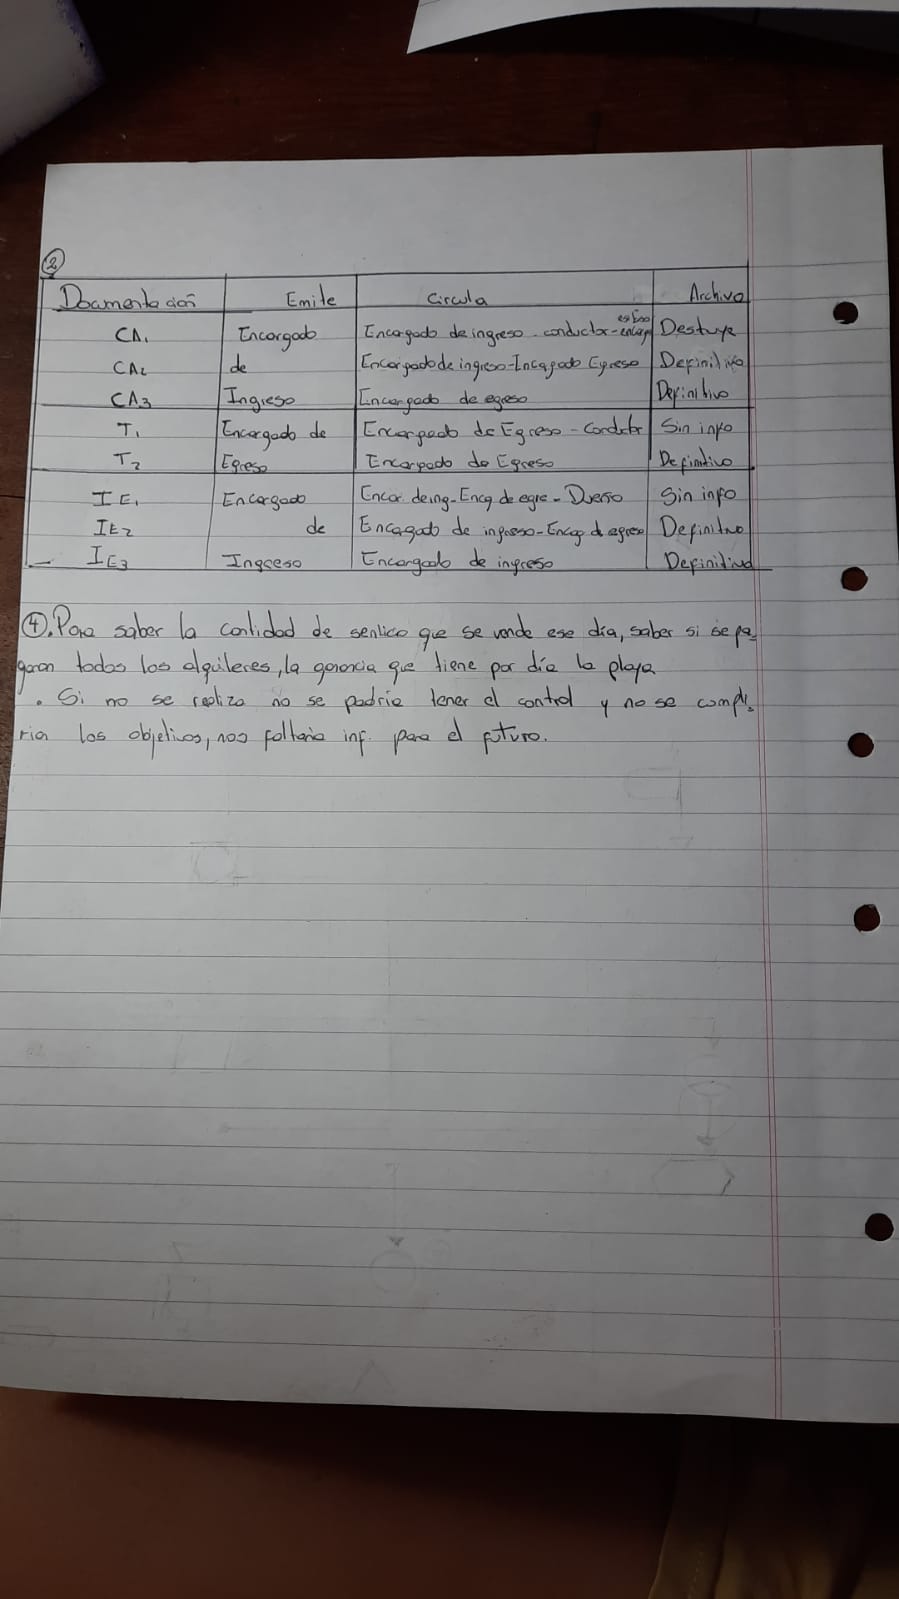 2
Documentación Emite Circula Archivo
CA1 Encargado Encargado de ingreso - conductor - encag egreso Destuye
CA2 de Encargado de ingreso - Encagado Egreso Definitivo
CA3 Ingreso Encargado de egreso Definitivo
T1 Encargado de Encargado de Egreso - Conductor Sin info
T2 Egreso Encargado de Egreso Definitivo
IE1 Encargado Encar de ing - Encg de egre - Dueño Sin info
IE2 de Encagado de ingreso - Encag d egreso Definitivo
IE3 Ingreso Encargado de ingreso Definitivo
4. Para saber la cantidad de que se vende ese día, saber si se pa-
garon todos los alquileres, la que tiene por día la playa
. Si no se realiza no se podria tener el control y no se compli-
ria los objetivos, nos faltaria inf. para el futuro.